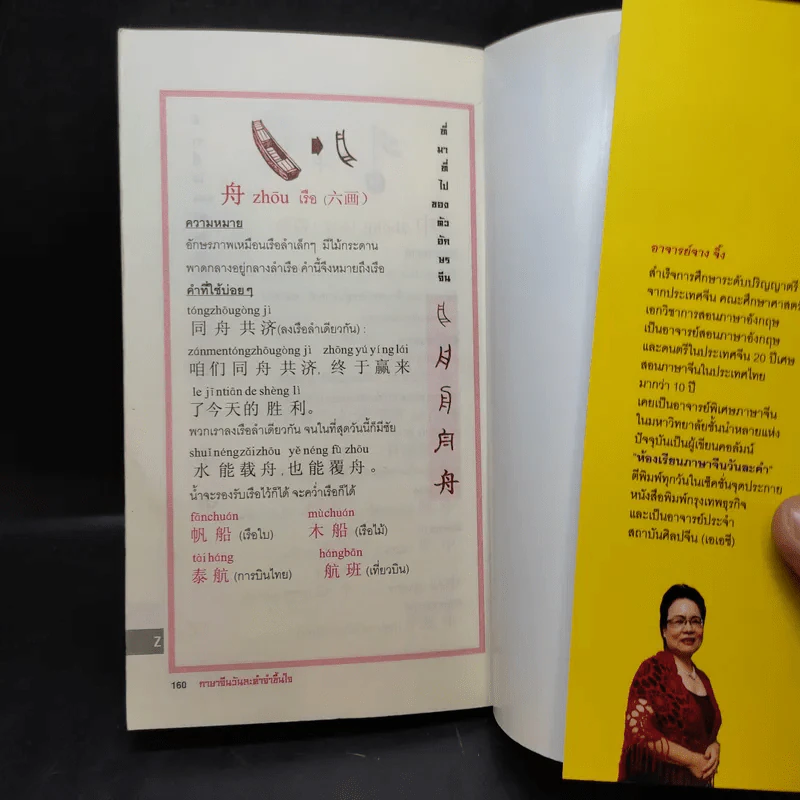 舟 zhōu เรือ (六画)
ความหมาย
อักษรภาพเหมือนเรือลำเล็กๆ มีไม้กระดาน
พาดกลางอยู่กลางลำเรือ คำนี้จึงหมายถึงเรือ
คำที่ใช้บ่อยๆ
tóngzhōugòng jì
同舟共济(ลงเรือลำเดียวกัน) :
zánmentóngzhōugòng jì zhōng yú yíng lái
咱们同舟共济, 终于赢来
le jīntiān de shèng lì
了今天的胜利。
พวกเราลงเรือลำเดียวกัน จนในที่สุดวันนี้ก็มีชัย
shuǐ néngzàizhōu yě néng fù zhōu
水能载舟,也能覆舟。
น้ำจะรองรับเรือไว้ก็ได้ จะคว่ำเรือก็ได้
fānchuán mùchuán
帆船 (เรือใบ) 木船 (เรือไม้)
tài háng hángbān
泰航 (การบินไทย) 航班 (เที่ยวบิน)
ที่มาที่ไปของตัวอักษรจีน
舟
Z
160 ภาษาจีนวันละคำจำขึ้นใจ
อาจารย์จาง จิ้ง
สำเร็จการศึกษาระดับปริญญาตรี
จากประเทศจีน คณะศึกษาศาสตร์
เอกวิชาการสอนภาษาอังกฤษ
เป็นอาจารย์สอนภาษาอังกฤษ
และดนตรีในประเทศจีน 20 ปีเศษ
สอนภาษาจีนในประเทศไทย
มากว่า 10 ปี
เคยเป็นอาจารย์พิเศษภาษาจีน
ในมหาวิทยาลัยชั้นนำหลายแห่ง
ปัจจุบันเป็นผู้เขียนคอลัมน์
"ห้องเรียนภาษาจีนวันละคำ"
ตีพิมพ์ทุกวันในเซ็คชั่นจุดประกาย
หนังสือพิมพ์กรุงเทพธุรกิจ
และเป็นอาจารย์ประจำ
สถาบันศิลปจีน (เอเอซี)